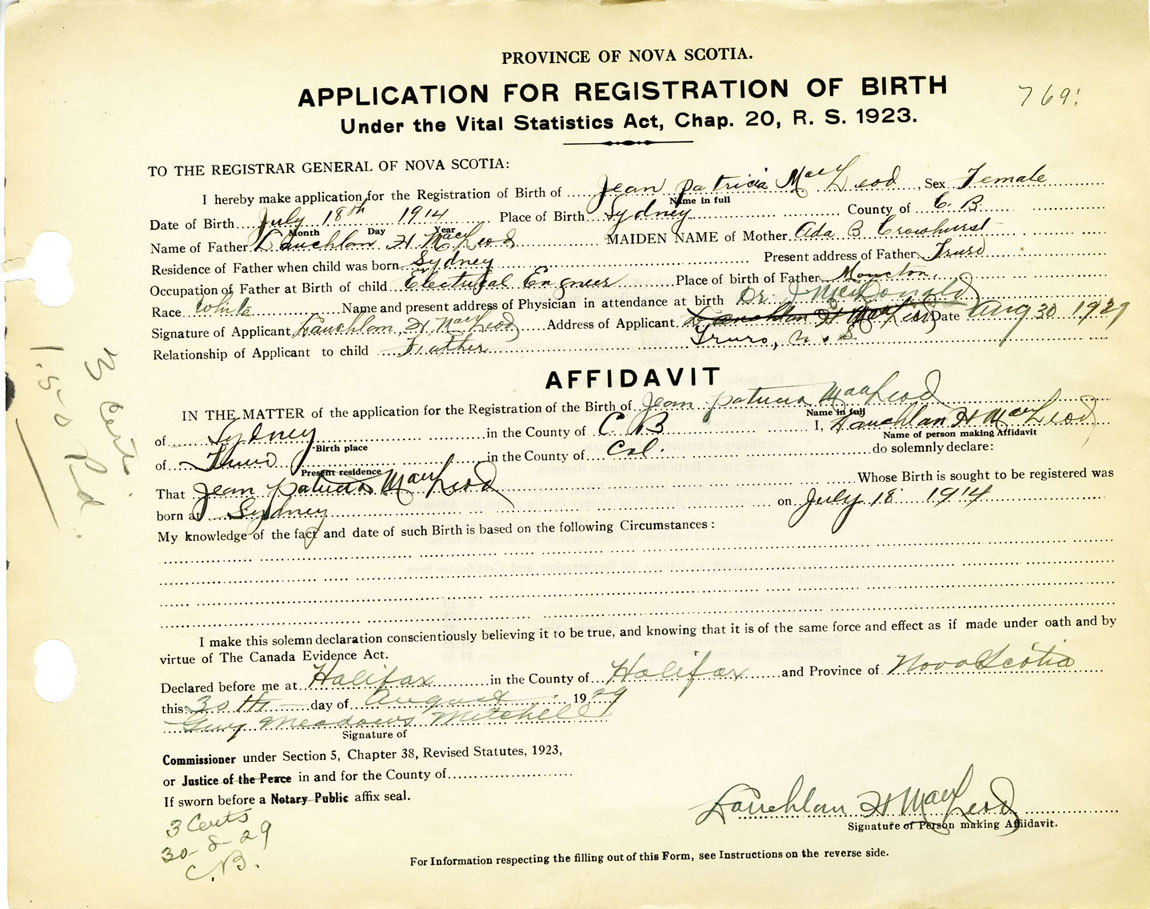 PROVINCE OF NOVA SCOTIA.
APPLICATION FOR REGISTRATION OF BIRTH
769
Under the Vital Statistics Act, Chap. 20, R. S. 1923.
TO THE REGISTRAR GENERAL OF NOVA SCOTIA:
I hereby make application for the Registration of Birth of Jean Patricia MacLeod, Sex Female
Name in full
Date of Birth July 18th 1914 Place of Birth Sydney County of C B.
Month Day Year
Name of Father Lauchlan H MacLeod MAIDEN NAME of Mother Ada B Crowhurst
Residence of Father when child was born Sydney Present address of Father Truro
Occupation of Father at Birth of child Electrical Engineer Place of birth of Father Moncton,
Race White Name and present address of Physician in attendance at birth Dr. J McDonald
Signature of Applicant Lauchlan H MacLeod Address of Applicant Lauchlan H MacLeod Date Aug 30 1929
Relationship of Applicant to child Father Truro, N S
AFFIDAVIT
IN THE MATTER of the application for the Registration of the Birth of Jean Patricia MacLeod
Name in full
of Sydney in the County of C B I, Lauchlan H MacLeod
Birth place Name of person making Affidavit
of Truro in the County of Col. do solemnly declare:
Present residence
That Jean Patricia MacLeod Whose Birth is sought to be registered was
born at Sydney on July 18 1914
My knowledge of the fact and date of such Birth is based on the following Circumstances:
I make this solemn declaration conscientiously believing it to be true, and knowing that it is of the same force and effect as if made under oath and by
virtue of The Canada Evidence Act.
Declared before me at Halifax in the County of Halifax and Province of Nova Scotia
this 30th day of August 1929
Guy Meadows Mitchell
Signature of
Commissioner under Section 5, Chapter 38, Revised Statutes, 1923,
or Justice of the Peace in and for the County of
If sworn before a Notary Public affix seal.
3 Certs
30-8-29
C.B.
Lauchlan H MacLeod
Signature of Person making Affidavit.
For Information respecting the filling out of this Form, see Instructions on the reverse side.
3 Certs
1.50 Pd.